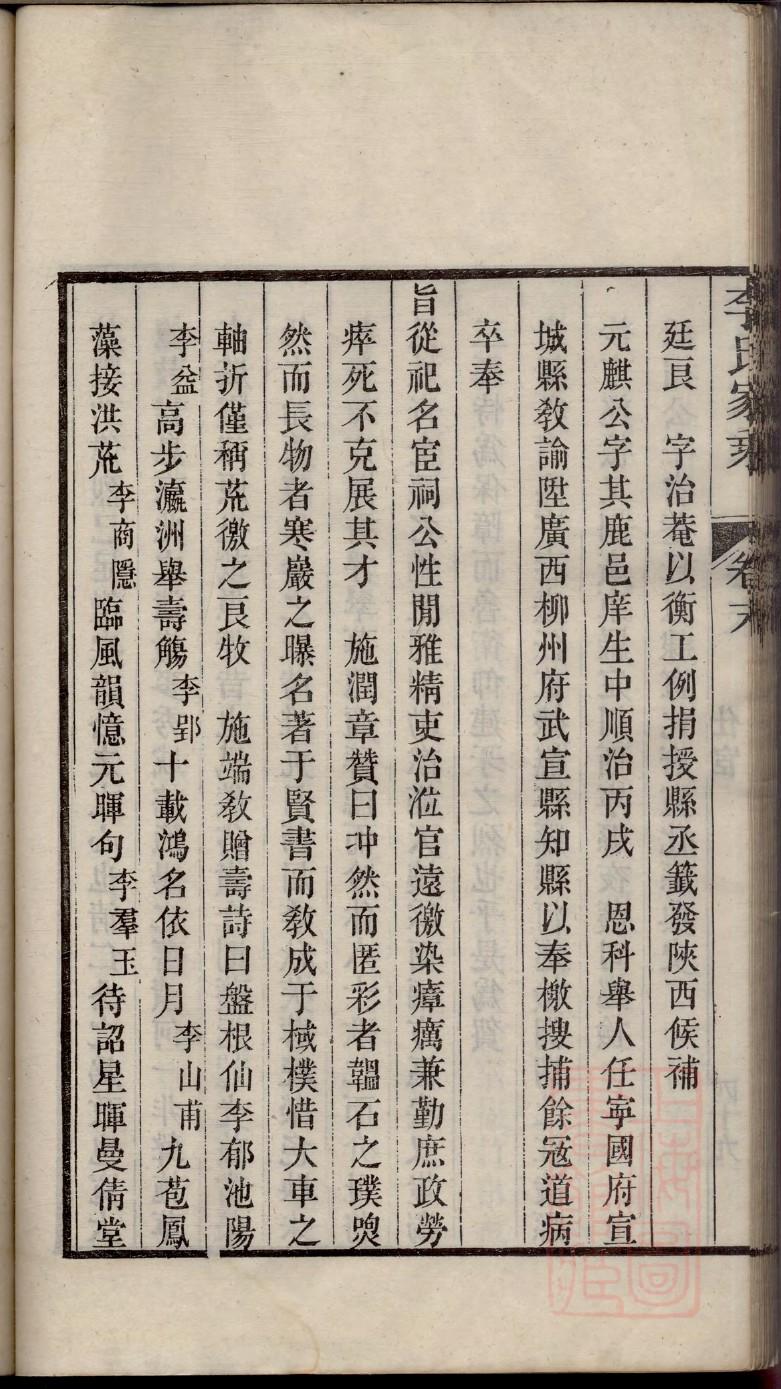 李氏家乘 卷末
廷良 字治菴以衡工例捐授縣丞籖發陝西候補
元麒公字其鹿邑庠生中順治丙戌 恩科舉人任寧國府宣
城縣敎諭陞廣西柳州府武宣縣知縣以奉檄搜捕餘冦道病
卒奉
旨從祀名宦祠公性閒雅精吏治涖官遠徼染瘴癘兼勤庶政勞
瘁死不克展其才 施潤章贊曰冲然而匿彩者韞石之璞煥
然而長物者寒巖之曝名著于賢書而敎成于棫樸惜大車之
軸折僅稱荒徼之良牧 施端敎贈壽詩曰盤根仙李郁池陽
李益高步瀛洲舉壽觴李郢十載鴻名依日月李山甫九苞鳳
藻接洪荒李商隱臨風韻憶元暉句李羣玉待詔星暉曼倩堂